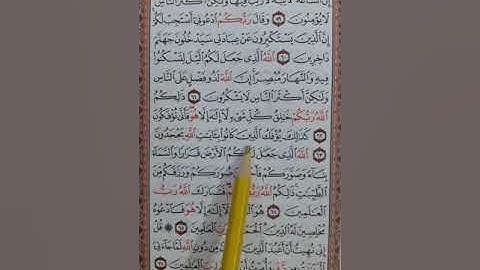 إِنَّ السَّاعَةَ لَآتِيَةٌ لَا رَيْبَ فِيهَا وَلَٰكِنَّ أَكْثَرَ
لَا يُؤْمِنُونَ ٥٩ وَقَالَ رَبُّكُمُ ادْعُونِي أَسْتَجِبْ لَكُمْ
إِنَّ الَّذِينَ يَسْتَكْبِرُونَ عَنْ عِبَادَتِي سَيَدْخُلُونَ جَهَنَّمَ
دَاخِرِينَ ٦٠ اللَّهُ الَّذِي جَعَلَ لَكُمُ اللَّيْلَ لِتَسْكُنُوا
فِيهِ وَالنَّهَارَ مُبْصِرًا إِنَّ اللَّهَ لَذُو فَضْلٍ عَلَى النَّاسِ
وَلَٰكِنَّ أَكْثَرَ النَّاسِ لَا يَشْكُرُونَ ٦١ ذَٰلِكُمُ
اللَّهُ رَبُّكُمْ خَٰلِقُ كُلِّ شَيْءٍ لَّا إِلَٰهَ إِلَّا هُوَ فَأَنَّىٰ تُؤْفَكُونَ
٦٢ كَذَٰلِكَ يُؤْفَكُ الَّذِينَ كَانُوا بِـَٔايَٰتِ اللَّهِ يَجْحَدُونَ
٦٣ اللَّهُ الَّذِي جَعَلَ لَكُمُ الْأَرْضَ قَرَارًا وَالسَّمَاءَ
بِنَاءً وَصَوَّرَكُمْ صُوَرَكُمْ وَرَزَقَكُم مِّنَ
الطَّيِّبَٰتِ ذَٰلِكُمُ اللَّهُ فَتَبَارَكَ اللَّهُ رَبُّ
الْعَٰلَمِينَ ٦٤ هُوَ إِلَٰهَ إِلَّا هُوَ فَادْعُوهُ
مُخْلِصِينَ لَهُ الدِّينَ الْحَمْدُ الْعَٰلَمِينَ ٦٥ ۞ قُلْ
إِنِّي نُهِيتُ أَنْ أَعْبُدَ الَّذِينَ مِن دُونِ اللَّهِ لَمَّا جَاءَنِيَ
مِن رَّبِّي وَأُمِرْتُ أَنْ الْعَٰلَمِينَ